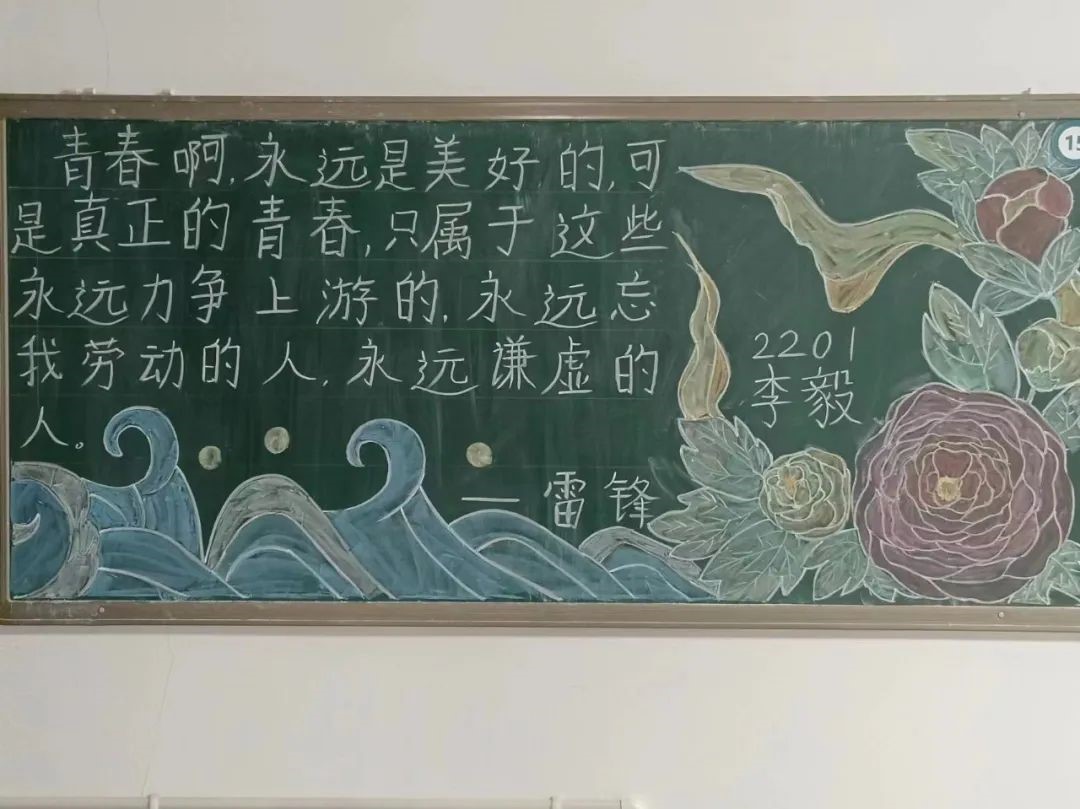 青春啊,永远是美好的,可
是真正的青春,只属于这些
永远力争上游的,永远忘
我劳动的人,永远谦虚的
人。
—雷锋
2201
李毅
15